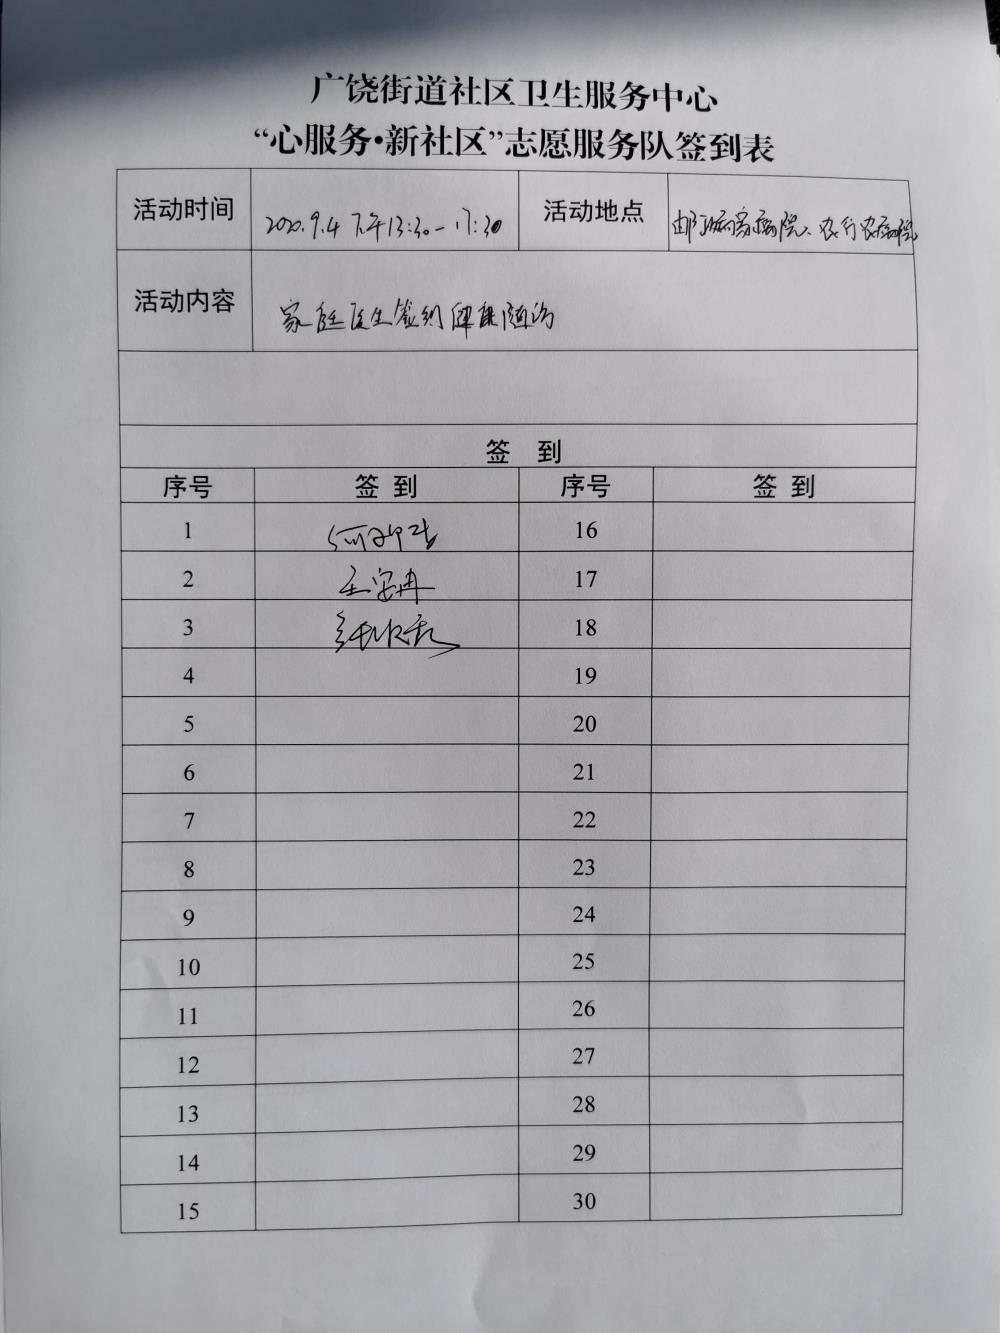 广饶街道社区卫生服务中心
“心服务•新社区”志愿服务队签到表
活动时间 2020.9.4 下午13:30-17:30 活动地点 家属院、农行家属院
活动内容 家庭医生签约健康随访
签 到
序号 签 到 序号 签 到
1 16
2 王安冉 17
3 18
4 19
5 20
6 21
7 22
8 23
9 24
10 25
11 26
12 27
13 28
14 29
15 30